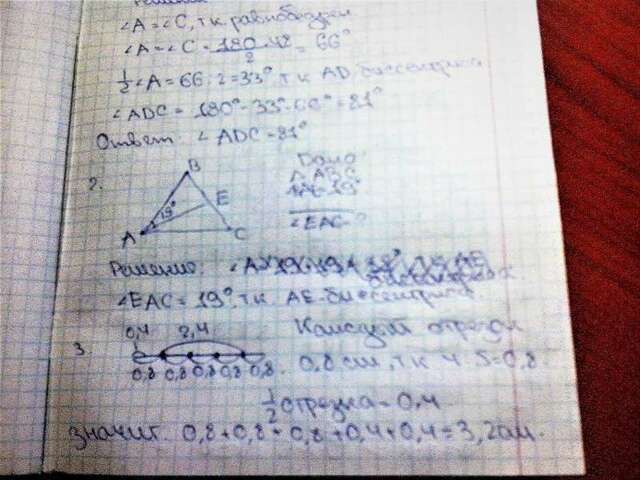 Решение
∠A = ∠C, т.к равнобедрен
∠A = ∠C = 180-48/2 = 66°
1/2∠A = 66:2=33°, т.к AD биссектриса
∠ADC = 180°-33°-66°=81°
Ответ: ∠ADC=81°
2.
B
E
19°
A
C
Дано
△ABC
19°
∠EAC-?
Решение:
∠EAC = 19°, т.к AE-биссектриса.
3.
0,4
2,4
0,8 0,8 0,8 0,8 0,8
Каждый отрезок
0,8 см, т.к 4:5=0,8
1/2 отрезка = 0,4
значит 0,8+0,8+0,8+0,4+0,4=3,2см.